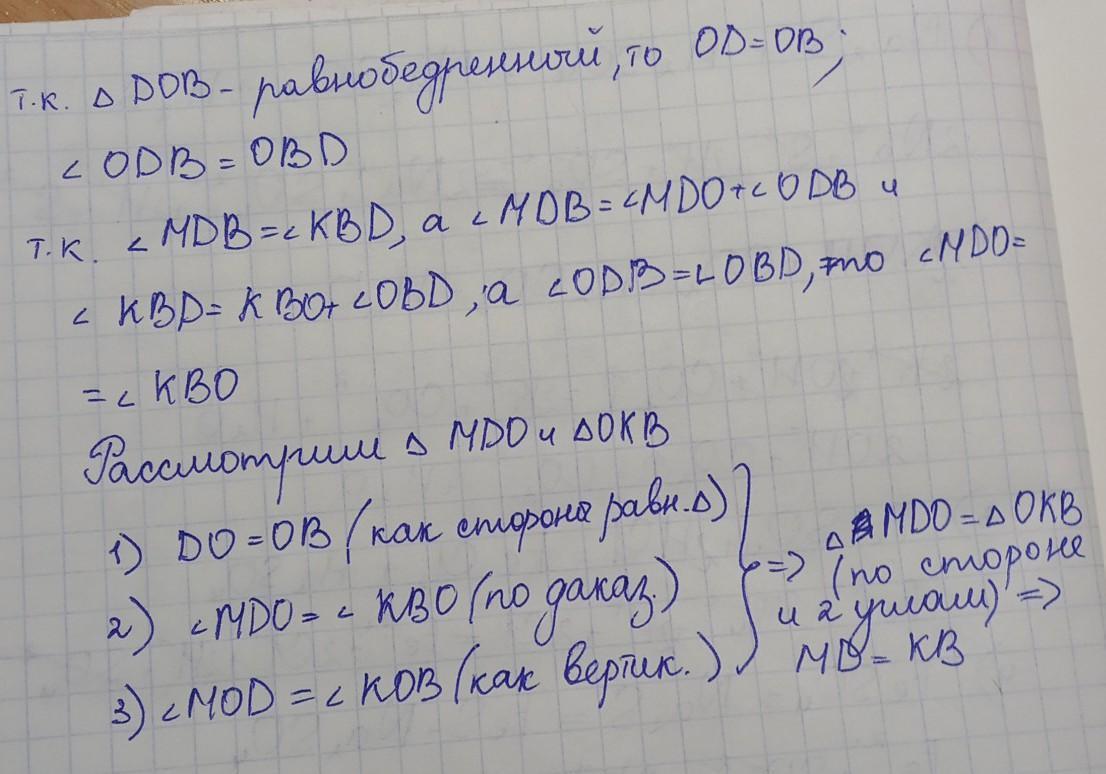 т.к. △ DOB - равнобедренный, то OD = OB;
∠ ODB = OBD
т.к. ∠ MDB = ∠ KBD, а ∠ MDB = ∠MDO + ∠ ODB и
∠ KBD = KBO + ∠OBD, а ∠ODB = ∠OBD, то ∠MDO =
= ∠ KBO
Рассмотрим △ MDO и △OKB
1) DO = OB (как стороне равн. △)
2) ∠MDO = ∠ KBO (по даказ.)
3) ∠MOD = ∠ KOB (как вертик.)
=> △ MDO = △ OKB
(по стороне
и 2 углам) =>
MD = KB